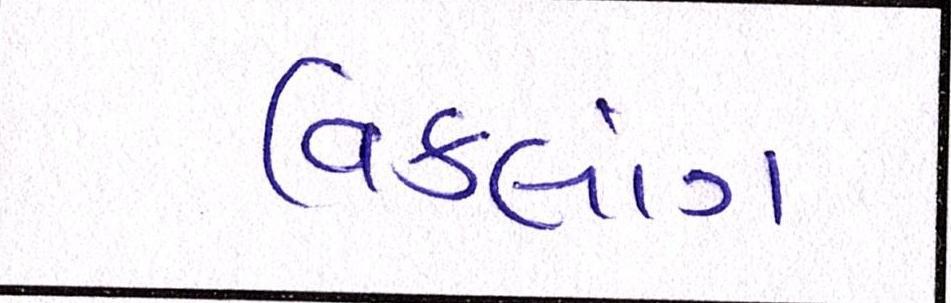 વિકલાંગ